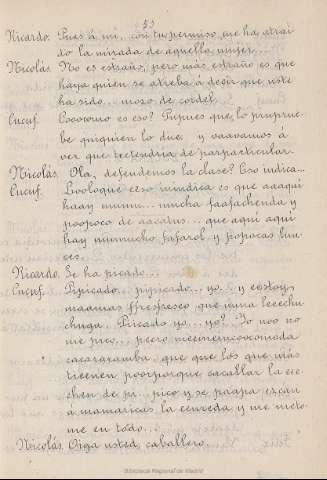 53
Ricardo. Pues á mi, con tu permiso, me ha atrai-
do la mirada de aquella mujer...
Nicolás. No es estraño, pero más estraño es que
haya quien se atreba á decir que uste
ha sido... mozo de cordel.
Cucuf. Coooomo es eso? Pupues que, lo prupruе-
be quiquien lo due, y vaavamos á
ver que
Nicolás. Ola, defendemos la clase? Eso indica...
Cucuf. Looloque eeso inindica es que aaaqui
haay mumu... mucha faafachenda y
poopoco de aacatus... que aqui aqui
hay mummucho fafarol y popocas luu-
ces.
Ricardo. Se ha picado...
Cucuf. Pipicado... pipicado... yo.. y eestoy
maamas ffresfresco que nuna leeechu
chuga. Piicado yo... yo? Yo noo no
me pico,... pero meememcoocomoda
que que los que más
tieenen poorporque cacallar la
chen de pi... pico y se paapa
á mamaricas la y me meto
me en todo...
Nicolás. Oiga usted, caballero...
Biblioteca Regional de Madrid